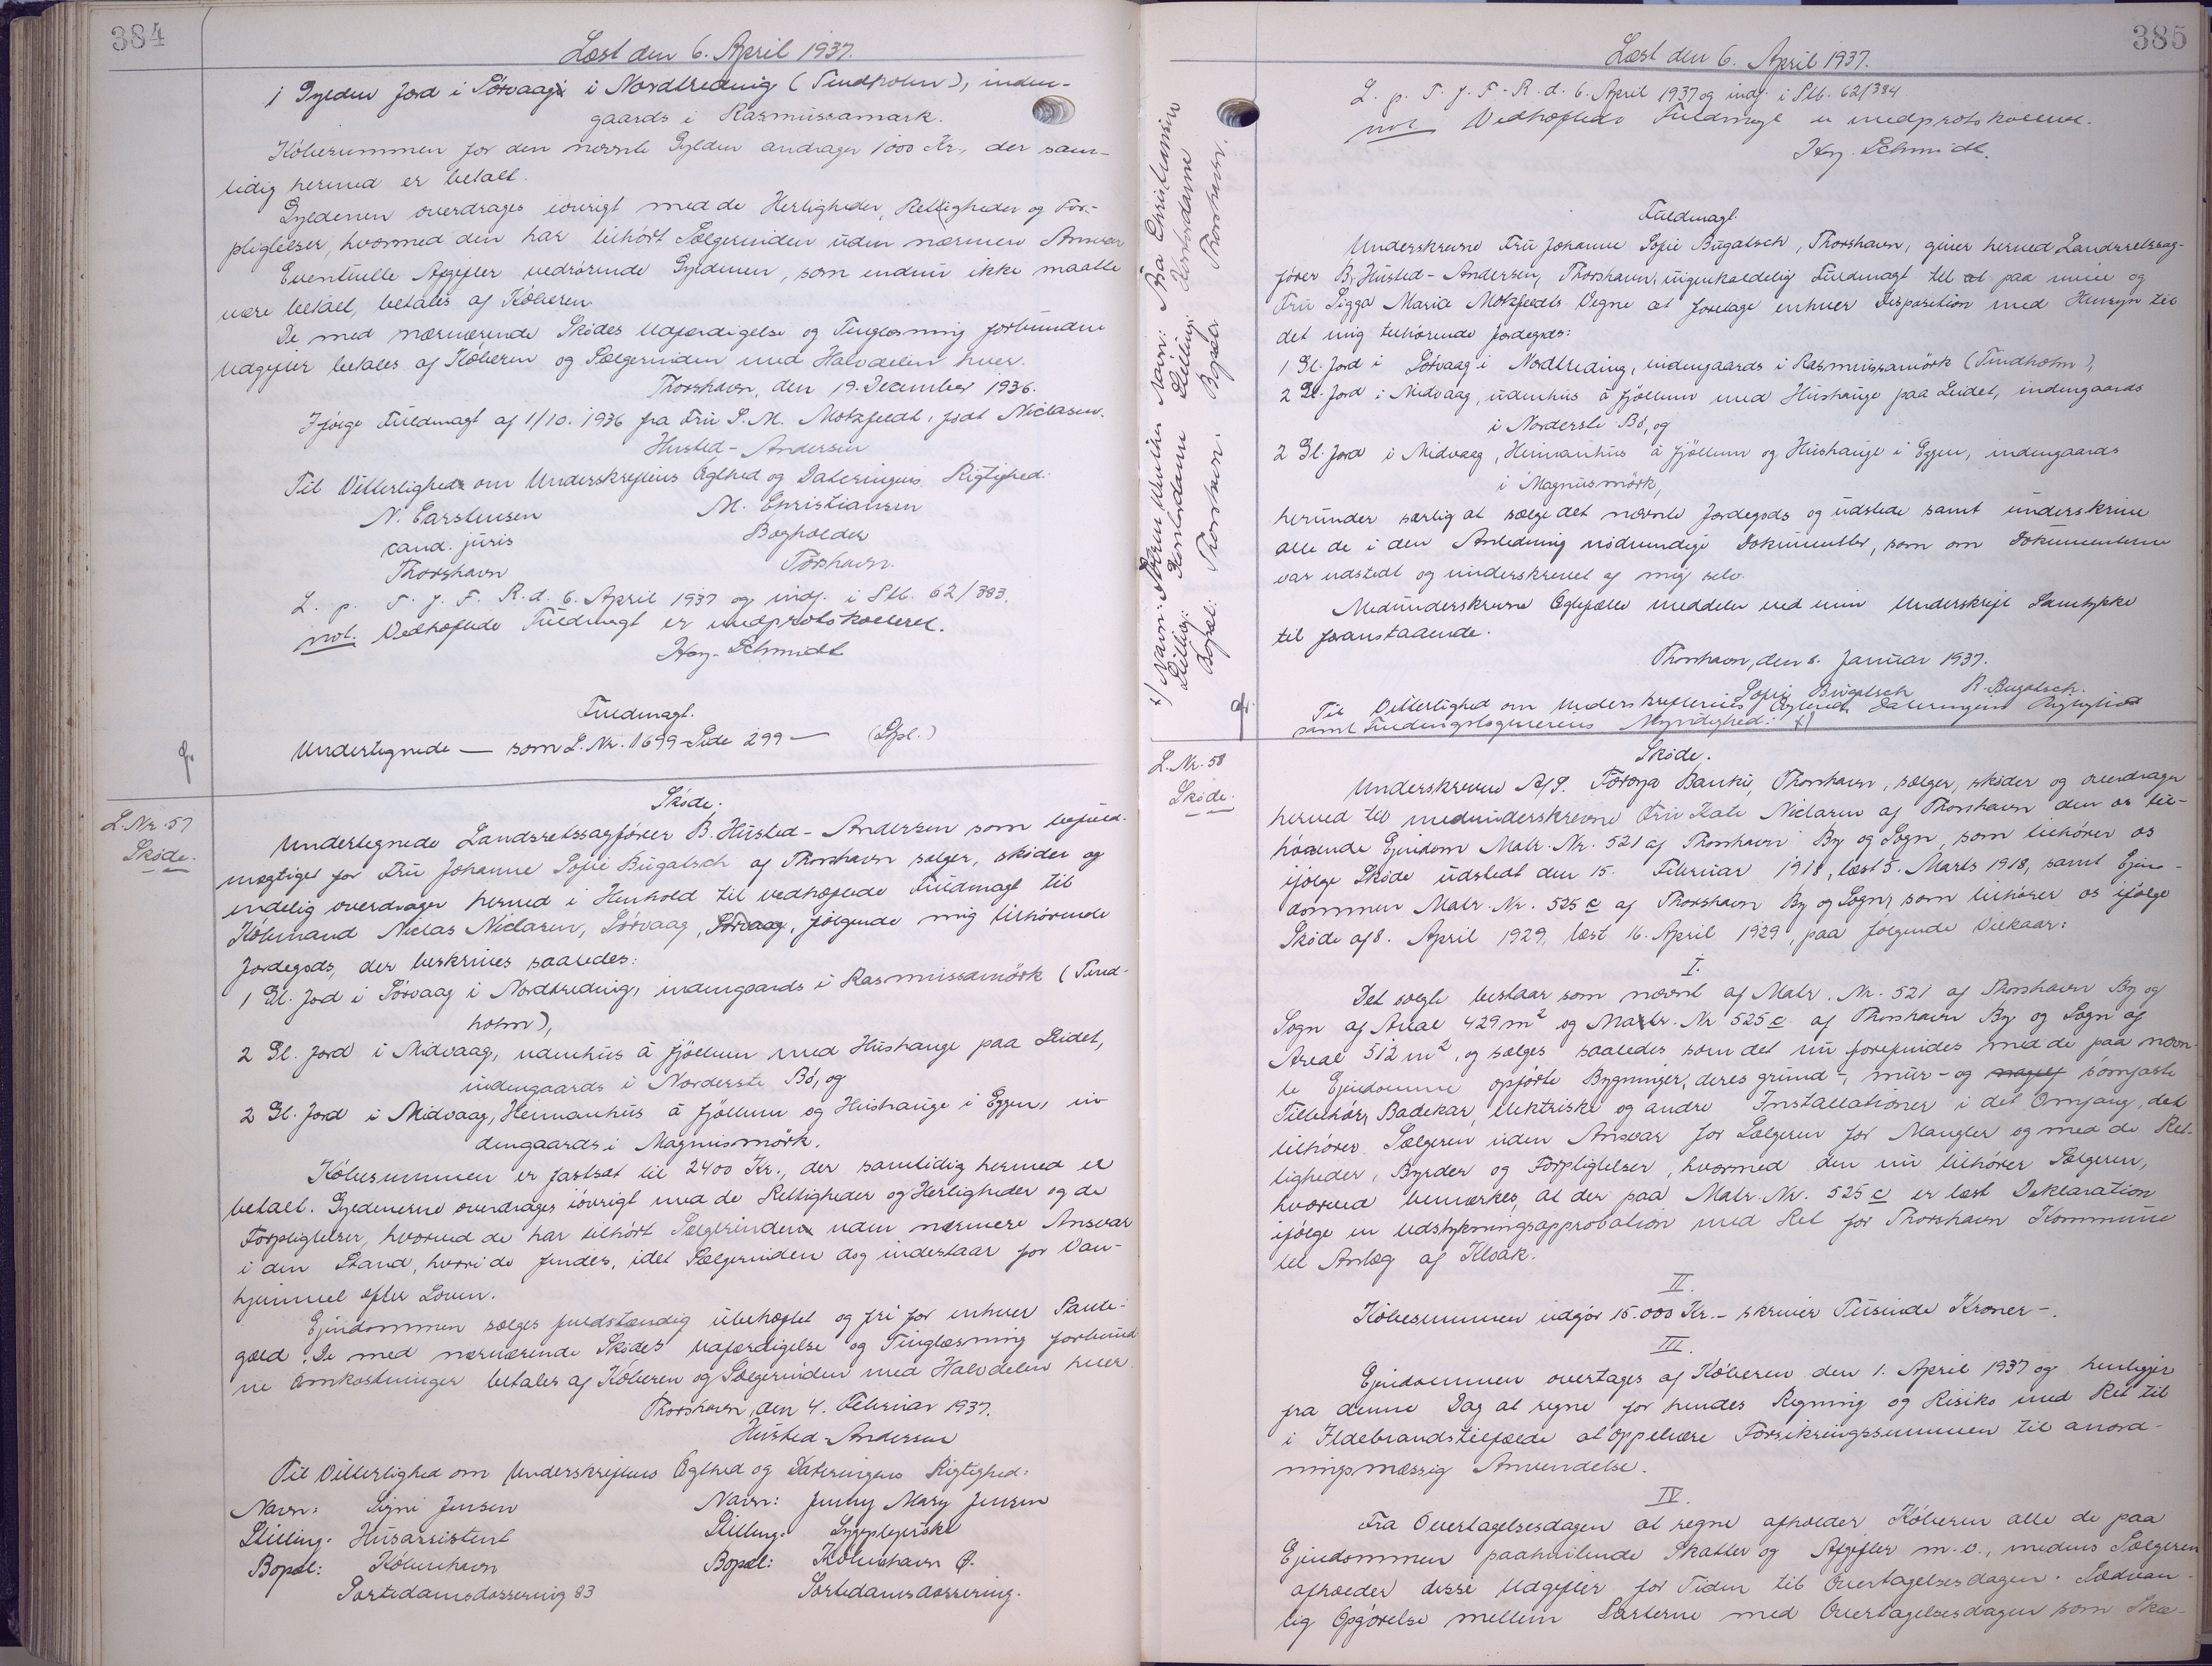 384
Læst den 6. April 1937.
1 Gylden Jord i Sørvaag i Nordtreding (Tindholm), inden-
gaards i Rasmussamark.
Købesummen for den nævnte Gylden andrager 1000 Kr., der sam-
tidig hermed er betalt.
Gyldenen overdrages iøvrigt med de Herligheder, Rettigheder og For-
pligtelser, hvormed den har tilhørt Sælgerinden uden nærmere Ansvar
Eventuelle Afgifter vedrørende Gyldenen, som endnu ikke maatte
være betalt, betales af Køberen.
De med nærværende Skødes Udfærdigelse og Tinglæsning forbundne
Udgifter betales af Køberen og Sælgerinden med Halvdelen hver.
Thorshavn, den 19. December 1936.
Ifølge Fuldmagt af 1/10. 1936 fra Fru S. M. Motzfeldt, født Niclasen.
Husted-Andersen
Til Vitterlighed om Underskriftens Ægthed og Dateringens Rigtighed:
N. Carstensen M. Christiansen
cand. juris Bogholder
Thorshavn Tórshavn.
L. p. T. f. F. R. d. 6. April 1937 og indf. i Stb. 62/383.
not. Vedhæftede Fuldmagt er medprotokolleret.
Hey-Schmidt
Fuldmagt.
Undertegnede — som L. Nr. 1699 - Side 299 —
L. Nr. 57
Skøde.
Skøde.
Undertegnede Landsretssagfører B. Husted-Andersen som befuld-
mægtiget for Fru Johanne Sofie Bugatsch af Thorshavn sælger, skøder og
endelig overdrager herved i Henhold til vedhæftede Fuldmagt til
Købmand Niclas Niclasen, Sørvaag, Sørvaag, følgende mig tilhørende
Jordegods, der beskrives saaledes:
1 Gl. Jord i Sørvaag i Nordtreding, indengaards i Rasmussamörk (Tind-
holm),
2 Gl. Jord i Midvaag, udenhus à fjøllum med Hushauge paa Leidet,
indengaards i Norderste Bø, og
2 Gl. Jord i Midvaag, Heimanhús à fjøllum og Hushauge i Eggen, in-
dengaards i Magnusmörk.
Købesummen er fastsat til 2400 Kr., der samtidig hermed er
betalt. Gyldenerne overdrages iøvrigt med de Rettigheder og Herligheder og de
Forpligtelser, hvormed de har tilhørt Sælgerinden uden nærmere Ansvar
i den Stand, hvori de findes, idet Sælgerinden dog indestaar for Van-
hjemmel efter Loven.
Ejendommen sælges fuldstændig ubehæftet og fri for enhver Pante-
gæld. De med nærværende Skødes Udfærdigelse og Tinglæsning forbund
ne Omkostninger betales af Køberen og Sælgerinden med Halvdelen hver.
Thorshavn, den 4. Februar 1937.
Husted-Andersen
Til Vitterlighed om Underskriftens Ægthed og Dateringens Rigtighed:
Navn: Signe Jensen Navn: Jenny Mary Jensen
Stilling: Husassistent Stilling: Sygeplejerske
Bopæl: København Bopæl: København Ø.
Sortedamsdossering 83 Sortedamsdossering.
385
Læst den 6. April 1937.
L. p. T. f. F. R. d. 6. April 1937 og indf. i Stb. 62/384
not. Vedhæftede Fuldmagt er medprotokolleret.
Hey-Schmidt.
Fuldmagt.
Underskrevne Fru Johanne Sofie Bugatsch, Thorshavn, giver herved Landsretssag-
fører B. Husted-Andersen, Thorshavn, uigenkaldelig Fuldmagt til at paa mine og
Fru Sigga Maria Motzfeldts Vegne at foretage enhver Disposition med Hensyn til
det mig tilhørende Jordegods:
1 Gl. Jord i Sørvaag i Nordtreding, indengaards i Rasmussamörk (Tindholm),
2 Gl. Jord i Midvaag, udenhus à fjøllum med Hushauge paa Leidet, indengaards
i Norderste Bø, og
2 Gl. Jord i Midvaag, Heimanhús à fjøllum og Hushauge i Eggen, indengaards
i Magnusmörk,
herunder særlig at sælge det nævnte Jordegods og udstede samt underskrive
alle de i den Anledning nødvendige Dokumenter, som om Dokumenterne
var udstedt og underskrevet af mig selv.
Medunderskrevne Ægtefælle meddeler ved min Underskrift Samtykke
til foranstaaende.
Thorshavn, den 8. Januar 1937.
Sofie Bugatsch R. Bugatsch.
Til Vitterlighed om Underskrifternes Ægthed, Dateringens Rigtighed
samt Fuldmagtsgiverens Myndighed: x)
x) Navn: Navn: Pia Christiansen
Stilling: Kontordame Stilling: Kontordame
Bopæl: Thorshavn. Bopæl Thorshavn.
L. Nr. 58
Skøde.
Skøde.
Underskrevne A/S. Føroya Banki, Thorshavn, sælger, skøder og overdrager
herved til medunderskrevne Fru Kate Niclasen af Thorshavn den os til-
hørende Ejendom Matr. Nr. 521 af Thorshavn By og Sogn, som tilhører os
ifølge Skøde udstedt den 15. Februar 1918, læst 5. Marts 1918, samt Ejen-
dommen Matr. Nr. 525 c af Thorshavn By og Sogn, som tilhører os ifølge
Skøde af 8. April 1929, læst 16. April 1929, paa følgende Vilkaar:
I.
Det solgte bestaar som nævnt af Matr. Nr. 521 af Thorshavn By og
Sogn af Areal 429 m² og Matr. Nr 525 c af Thorshavn By og Sogn af
Areal 512 m², og sælges saaledes som det nu forefindes med de paa nævn-
te Ejendomme opførte Bygninger, deres grund-, mur- og sømfaste
Tilbehør, Badekar, elektriske og andre Installationer i det Omfang, det
tilhører Sælgeren uden Ansvar for Sælgeren for Mangler og med de Ret-
tigheder, Byrder og Forpligtelser, hvormed den nu tilhører Sælgeren,
hvorved bemærkes, at der paa Matr. Nr. 525 c er læst Deklaration
ifølge en Udstykningsapprobation med Ret for Thorshavn Kommune
til Anlæg af Kloak.
II.
Købesummen udgør 15.000 Kr. - skriver Tusinde Kroner -.
III.
Ejendommen overtages af Køberen den 1. April 1937 og henligger
fra denne Dag at regne for hendes Regning og Risiko med Ret til
i Ildebrandstilfælde at oppebære Forsikringssummen til anord-
ningsmæssig Anvendelse.
IV.
Fra Overtagelsesdagen at regne afholder Køberen alle de paa
Ejendommen paahvilende Skatter og Afgifter m.v., medens Sælgeren
afholder disse Udgifter for Tiden til Overtagelsesdagen. Sædvan-
lig Opgørelse mellem Parterne med Overtagelsesdagen som Skæ-